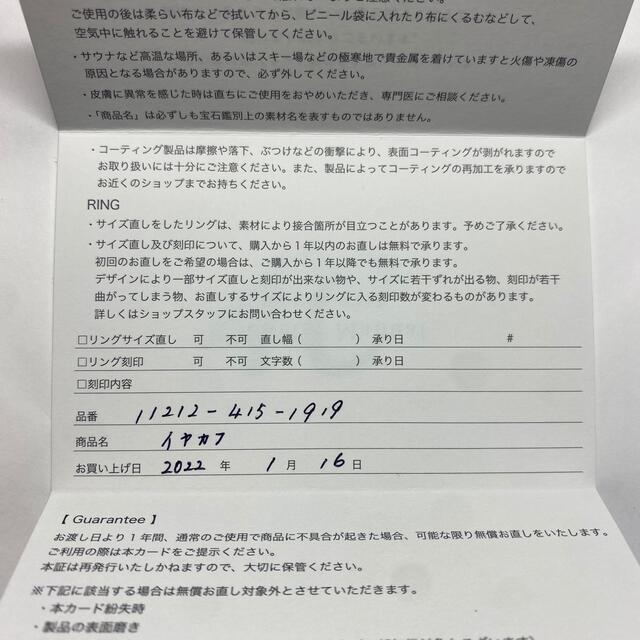 ご使用の後は柔らい布などで拭いてから、ビニール袋に入れたり布にくるむなどして、
空気中に触れることを避けて保管してください。
・サウナなど高温な場所、あるいはスキー場などの極寒地で貴金属を着けていますと火傷や凍傷の
原因となる場合がありますので、必ず外してください。
・皮膚に異常を感じた時は直ちにご使用をおやめいただき、専門医にご相談ください。
・「商品名」は必ずしも宝石鑑別上の素材名を表すものではありません。
・コーティング製品は摩擦や落下、ぶつけなどの衝撃により、表面コーティングが剥がれますので
お取り扱いには十分にご注意ください。また、製品によってコーティングの再加工を承りますので
お近くのショップまでお持ちください。
RING
・サイズ直しをしたリングは、素材により接合箇所が目立つことがあります。予めご了承ください。
・サイズ直し及び刻印について、購入から1年以内のお直しは無料で承ります。
初回のお直しをご希望の場合は、ご購入から1年以降でも無料で承ります。
デザインにより一部サイズ直しと刻印が出来ない物や、サイズに若干ずれが出る物、刻印が若干
曲がってしまう物、お直しするサイズによりリングに入る刻印数が変わるものがあります。
詳しくはショップスタッフにお問い合わせください。
□リングサイズ直し 可 不可 直し幅（ ）承り日 #
□リング刻印 可 不可 文字数（ ）承り日
□刻印内容
品番 11212-415-1919
商品名 イヤカフ
お買い上げ日 2022 年 1 月 16 日
【 Guarantee 】
お渡し日より1年間、通常のご使用で商品に不具合が起きた場合、可能な限り無償お直しをいたします。
ご利用の際は本カードをご提示ください。
本証は再発行いたしかねますので、大切に保管ください。
※下記に該当する場合は無償お直し対象外とさせていただきます。
・本カード紛失時
・製品の表面磨き